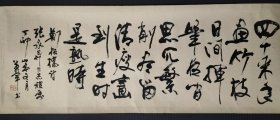 四十年来
画竹枝
日间挥
夜间
思冗繁
削尽留
清瘦画
到生时
是熟时
郑板桥诗
丁卯年